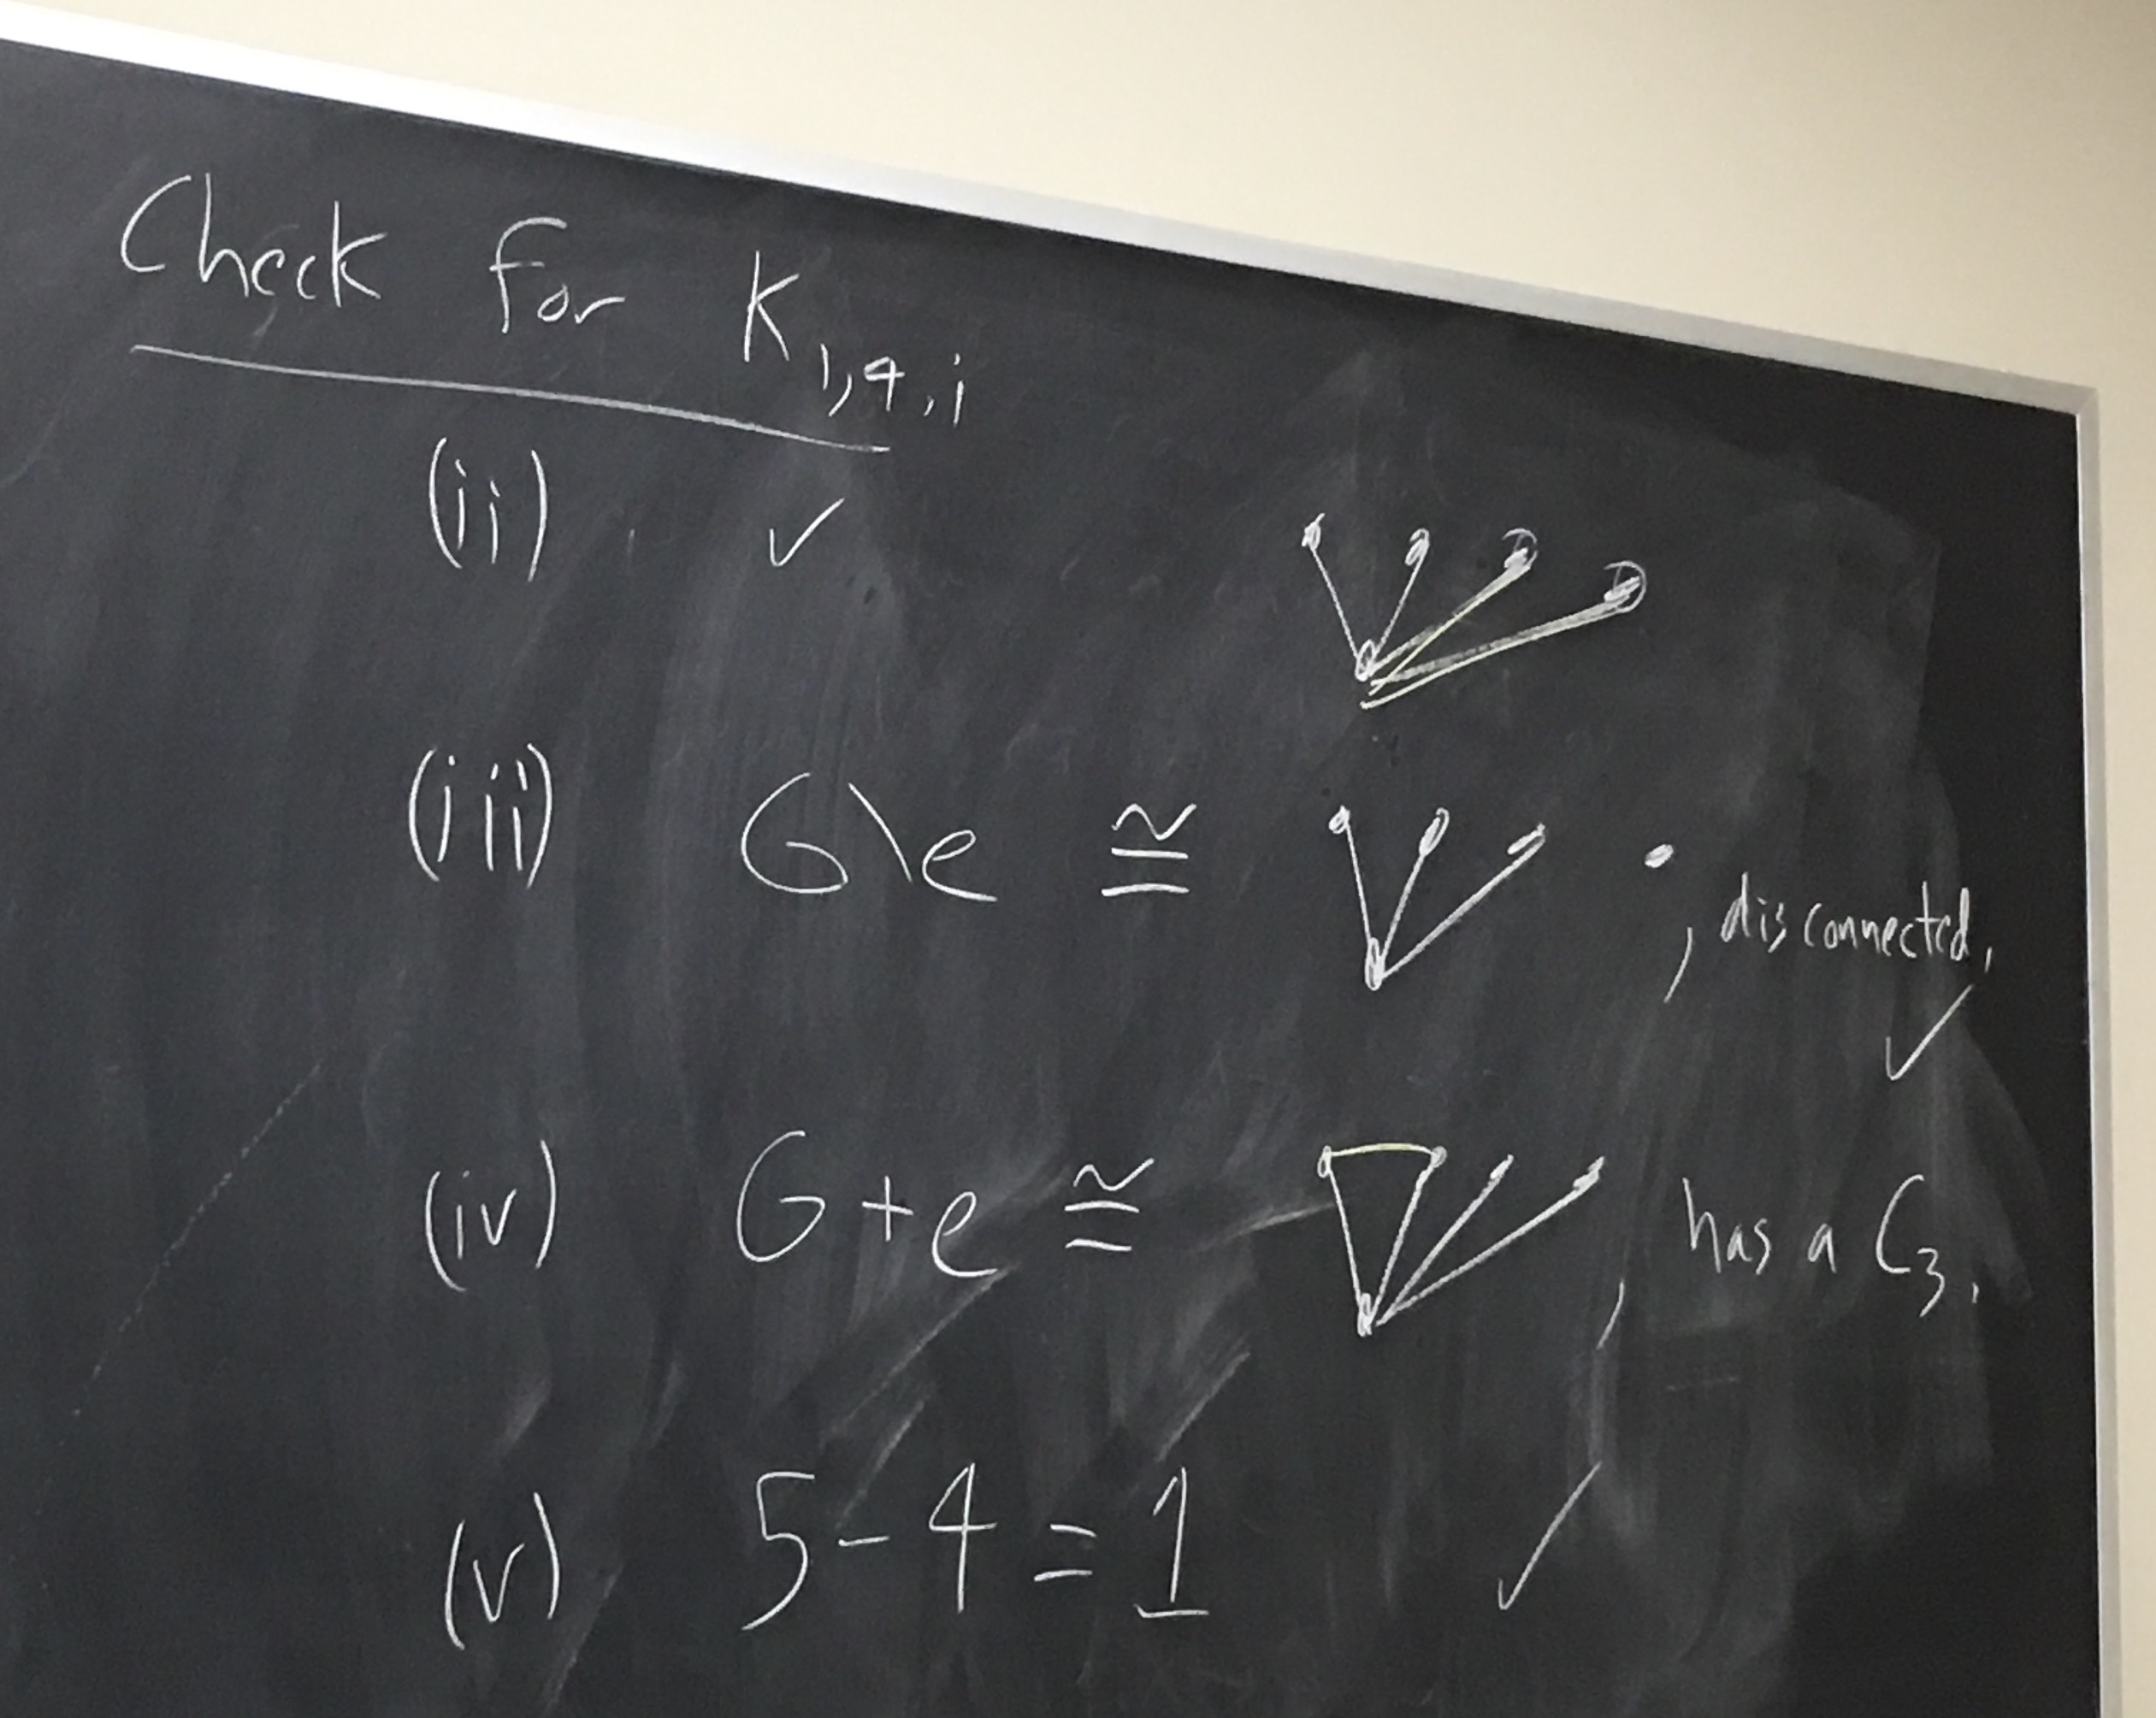 Check for K₁,₄,i
(ii) ✓
(iii) G\e ≅ , disconnected, ✓
(iv) G+e ≅ , has a C₃.
(v) 5-4=1 ✓